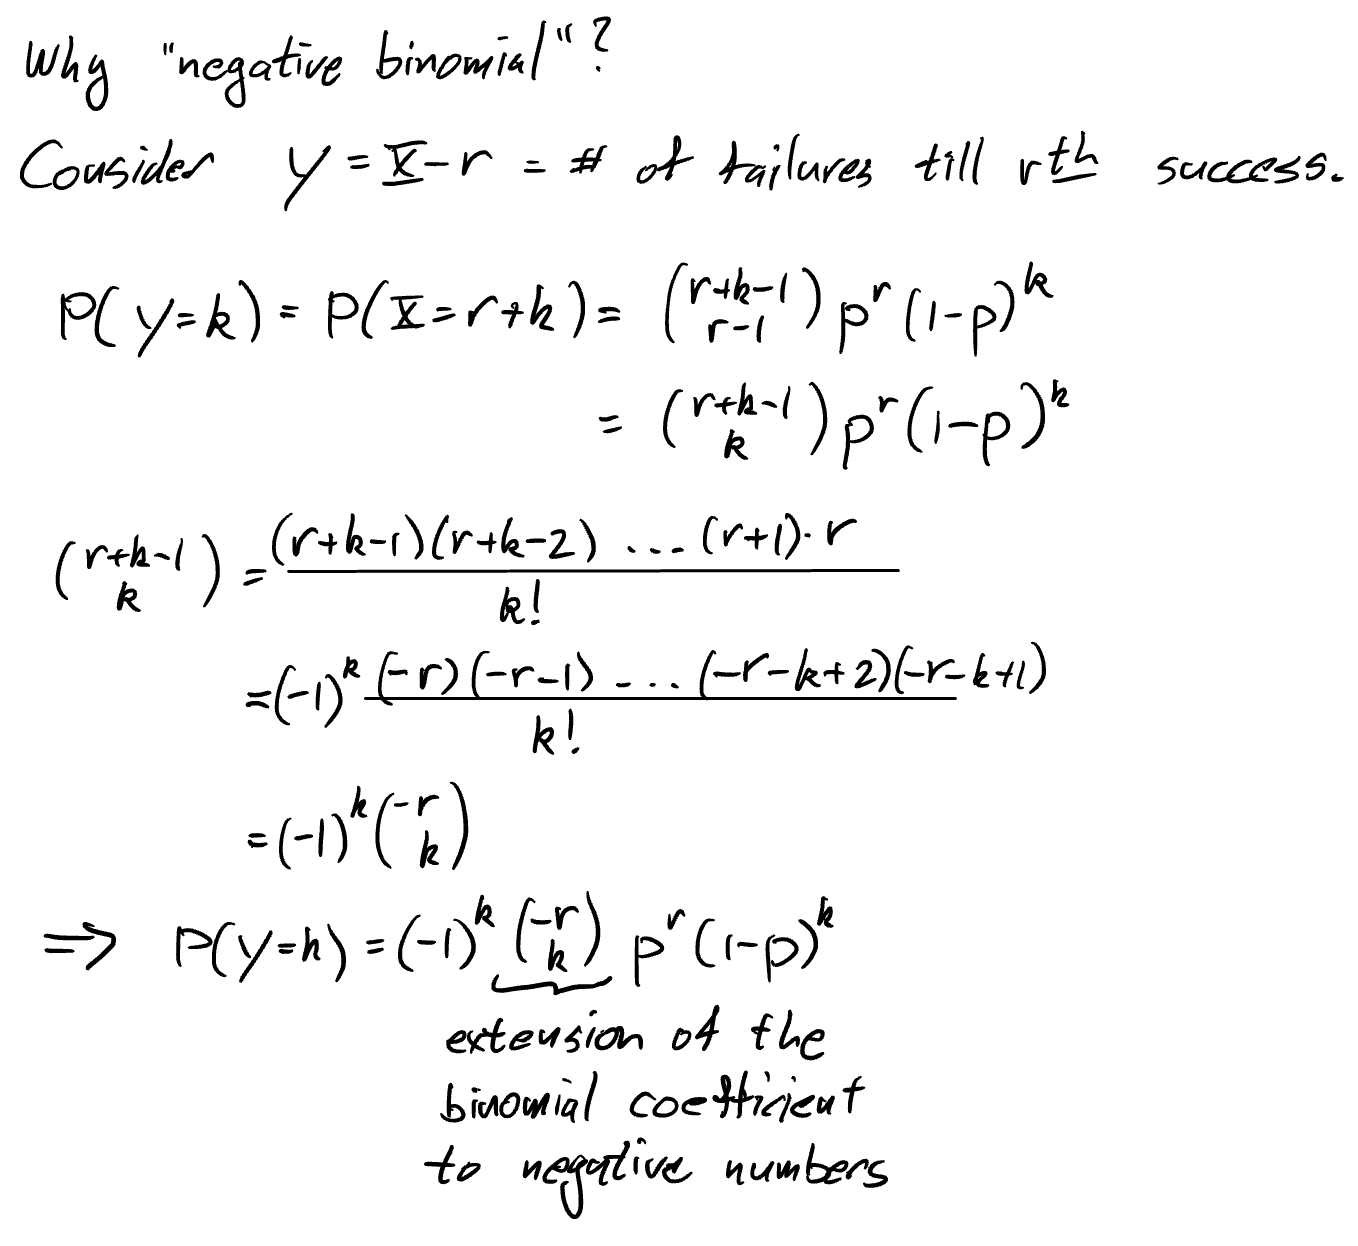 Why "negative binomial"?
Consider Y = X - r = # of failures till rth success.
P(Y=k) = P(X=r+k) = \binom{r+k-1}{r-1} p^r (1-p)^k
= \binom{r+k-1}{k} p^r (1-p)^k
\binom{r+k-1}{k} = \frac{(r+k-1)(r+k-2) ... (r+1)·r}{k!}
= (-1)^k \frac{(-r)(-r-1) ... (-r-k+2)(-r-k+1)}{k!}
= (-1)^k \binom{-r}{k}
⇒ P(Y=k) = (-1)^k \binom{-r}{k} p^r (1-p)^k
extension of the
binomial coefficient
to negative numbers